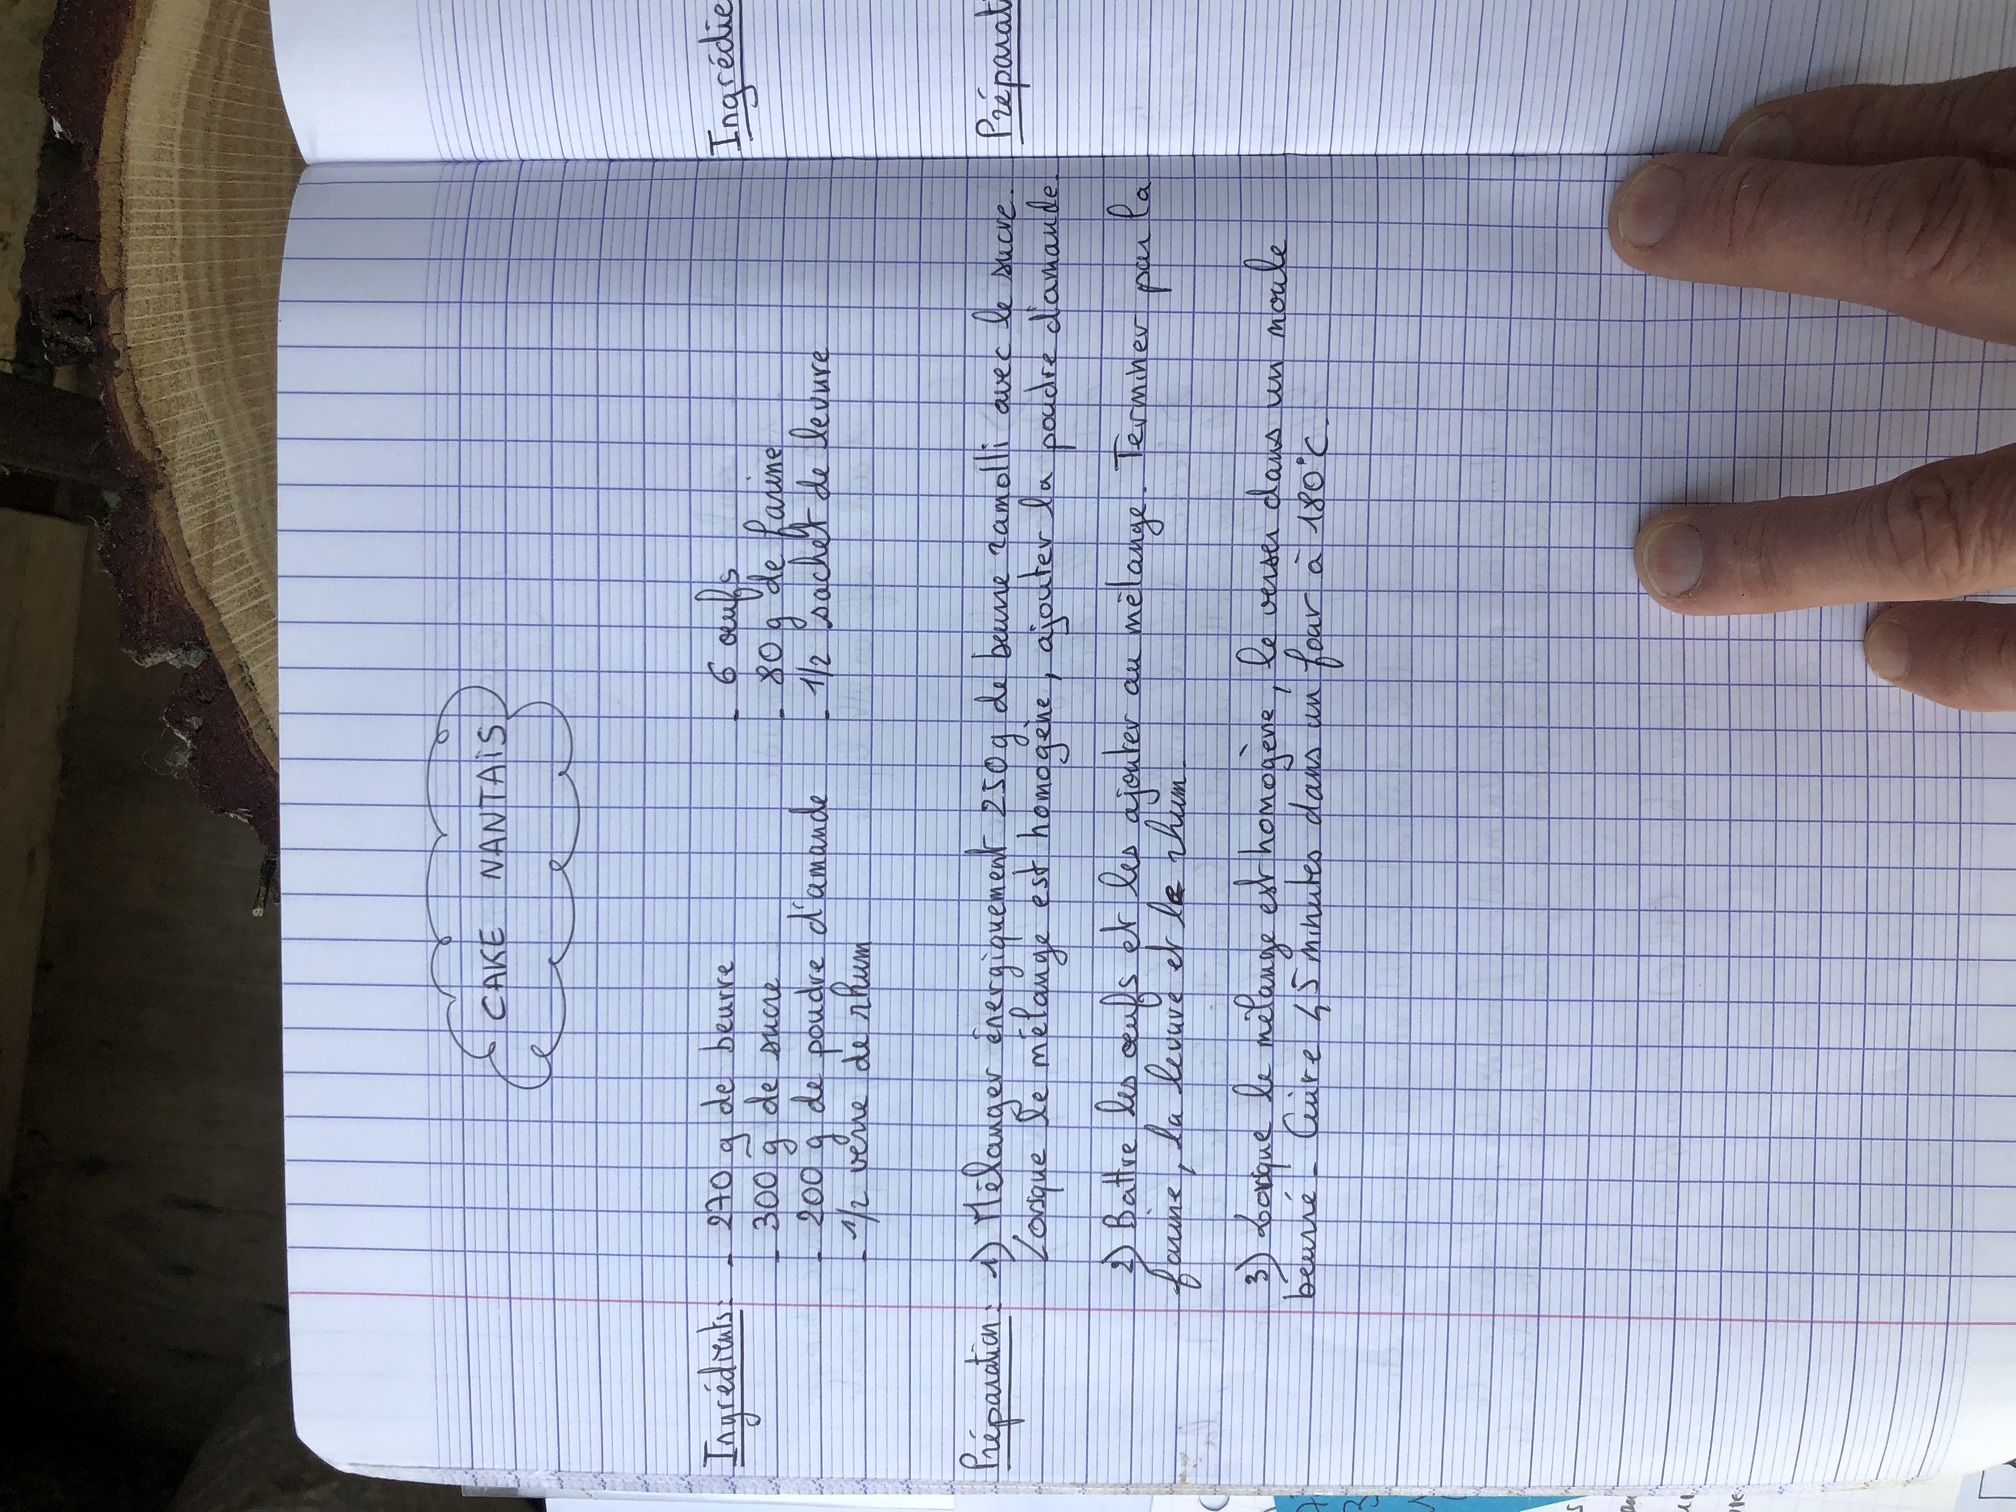 CAKE NANTAIS
Ingrédients: - 270 g de beurre - 6 œufs
- 300 g de sucre - 80 g de farine
- 200 g de poudre d'amande - 1/2 sachet de levure
- 1/2 verre de rhum
Préparation: 1) Mélanger énergiquement 250 g de beurre ramolli avec le sucre.
Lorsque le mélange est homogène, ajouter la poudre d'amande.
2) Battre les œufs et les ajouter au mélange. Terminer par la
farine, la levure et le rhum.
3) Lorsque le mélange est homogène, le verser dans un moule
beurré. Cuire 45 minutes dans un four à 180°C.
Ingrédie
Préparat